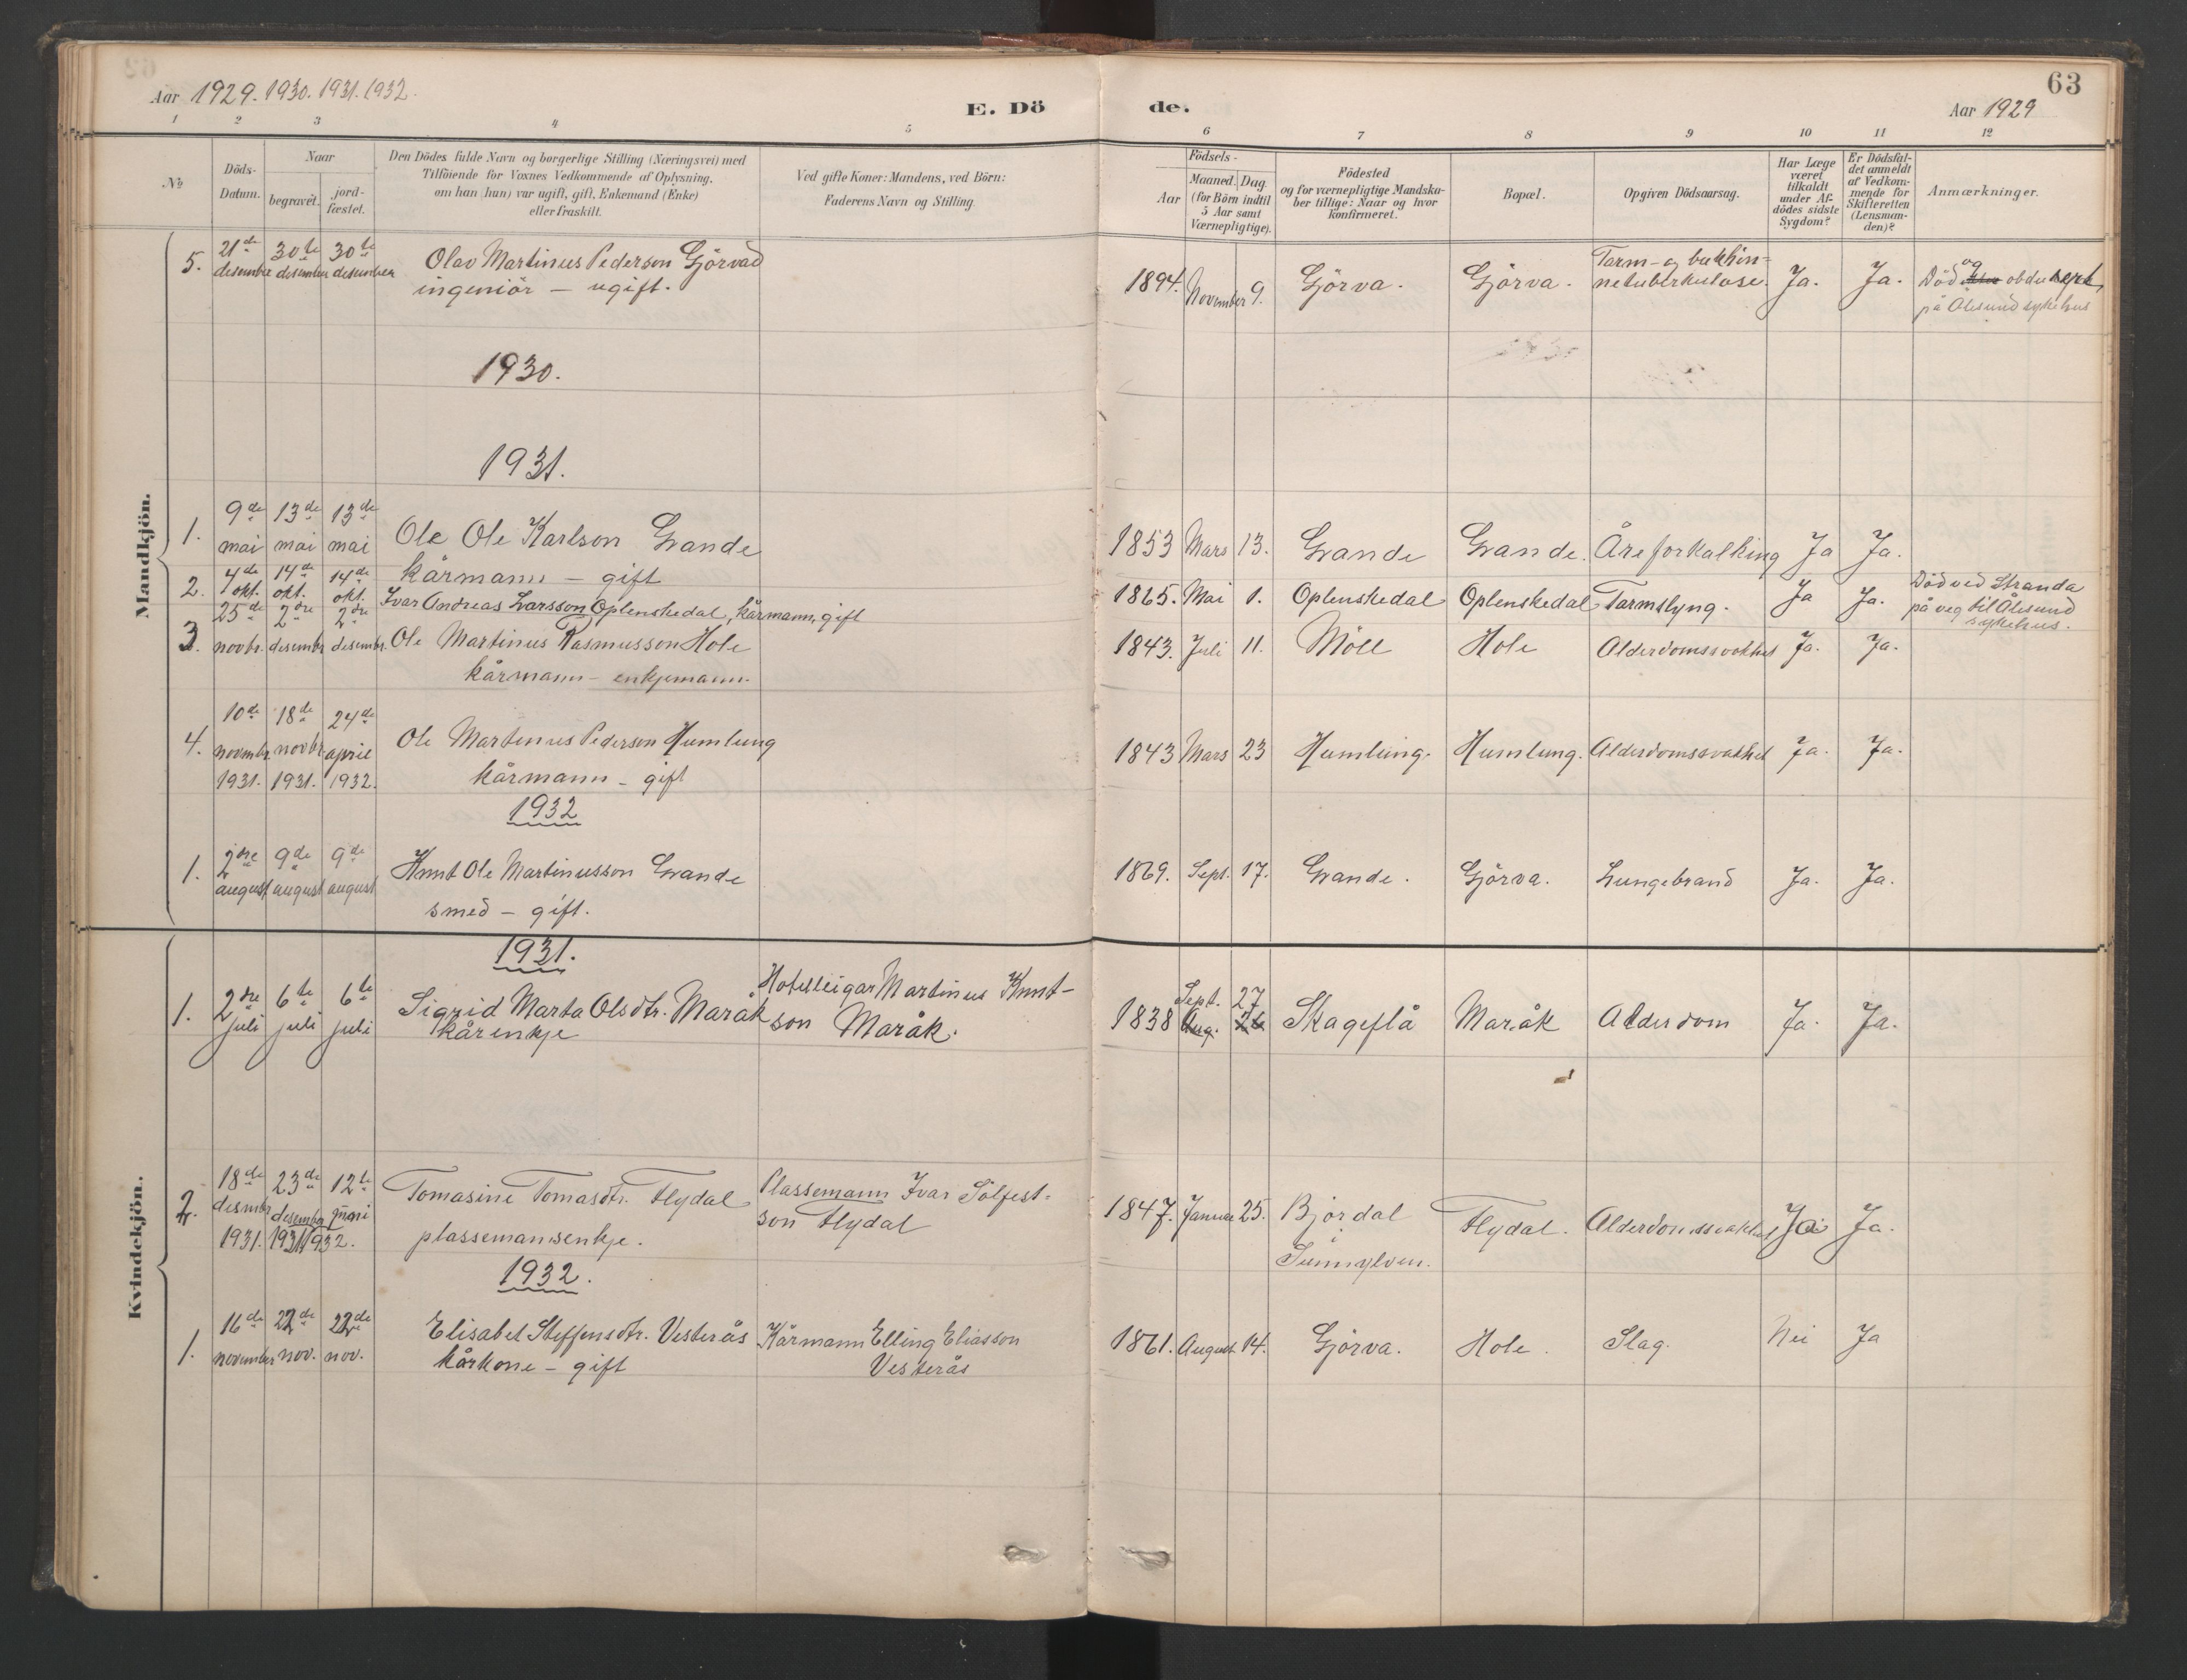 63
Aar 1929. 1930. 1931. 1932.
E. Dö de.
Aar 1929
1 2 3 4 5 6 7 8 9 10 11 12
№
Döds-
Datum.
Naar
begravet.
jord-
fæstet.
Den Dödes fulde Navn og borgerlige Stilling (Næringsvei) med
Tilföiende for Voxnes Vedkommende af Oplysning,
om han (hun) var ugift, gift, Enkemand (Enke)
eller fraskilt.
Ved gifte Koner: Mandens, ved Börn:
Faderens Navn og Stilling.
Födsels-
Aar
Maaned. Dag
(for Börn indtil
5 Aar samt
Værnepligtige).
Födested
og for værnepligtige Mandska-
ber tillige: Naar og hvor
konfirmeret.
Bopæl.
Opgiven Dödsaarsag.
Har Læge
været
tilkaldt
under Af-
dödes sidste
Sygdom?
Er Dödsfal-
det anmeldt
af Vedkom-
mende for
Skifteretten
(Lensman-
den)?
Anmærkninger.
Mandkjön.
5. 21de desember 30te desember 30te desember Olav Martinus Pederson Gjörvad
ingeniör – ugift.
1894. November 9. Gjörva. Gjörva. Tarm- og bukhin-
netuberkulose. Ja. Ja. Död og obdusert
på Ålesund sykehus
1930.
1931.
1. 9de mai 13de mai 13de mai Ole Ole Karlson Grande
kårmann – gift
1853 Mars 13. Grande Grande. Åreforkalking Ja Ja.
2. 4de okt. 14de okt. 14de okt. Ivar Andreas Larsson Oplenskedal, kårmann, gift
1865. Mai 1. Oplenskedal Oplenskedal Tarmslyng. Ja Ja. Död ved Stranda
på veg til Ålesund
sykehus.
3. 25de novbr. 2dre desembr 2dre desembr. Ole Martinus Rasmusson Hole
kårmann – enkjemann.
1843. Juli 11. Möll Hole Alderdomssvakhet Ja. Ja.
4. 10de novembr 1931. 18de novbr. 1931. 24de april 1932. Ole Martinus Pederson Humlung
kårmann – gift
1843 Mars 23 Humlung. Humlung. Alderdomssvakhet Ja. Ja.
1932
1. 2dre august 9de august 9de august Knut Ole Martinusson Grande
smed – gift.
1869. Sept. 17. Grande. Gjörva. Lungebrand Ja. Ja.
Kvindekjön.
1931.
1. 2dre juli 6te juli 6te juli Sigrid Marta Olsdtr. Maråk
kårenkje
Hotelleigar Martinus Knut-
son Maråk.
1838 Sept. 27
Aug. 26 Skageflå Maråk Alderdom Ja. Ja.
2. 18de desmbr 1931. 23de desember 1931 12te juni 1932. Tomasine Tomasdtr. Flydal
plassemansenkje.
Plassemann Ivar Sölfest-
son Flydal
1847. Januar 25. Bjórdal
i
Sunnylven. Flydal. Alderdomssvakhet Ja Ja.
1932.
1. 16de november 22de nov. 22de nov. Elisabet Steffensdtr. Vesterås
kårkone – gift
Kårmann Elling Eliasson
Vesterås
1861. August 14. Gjörva. Hole. Slag. Nei Ja